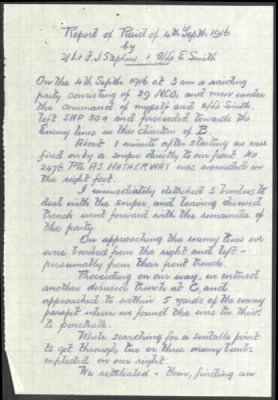 Report of Raid of 4th Septth 1916
by
2/Lt F.J. Stapkins & 2/Lt E Smith
On the 4th Septth 1916 at 3 am a raiding
party consisting of 29 NCOs, and men under
the command of myself and 2/Lt Smith,
left SAP 304 and proceeded towards the
Enemy lines in the direction of B.
About 1 minute after starting we were
fired on by a sniper directly to our front No
2476 Pte AS HATHERWAY was wounded in
the right foot.
I immediately detached 3 bombers to
deal with the sniper, and leaving disused
trench went forward with the remainder of
the party.
On approaching the enemy lines we
were bombed from the right and left -
presumably from their front trench.
Proceeding on our way, we entered
another disused trench at C, and
approached to within 5 yards of the enemy
parapet where we found the wire too thick
to penetrate.
While searching for a suitable point
to get through two or three enemy bombs
exploded on our right.
We retaliated - then, finding an